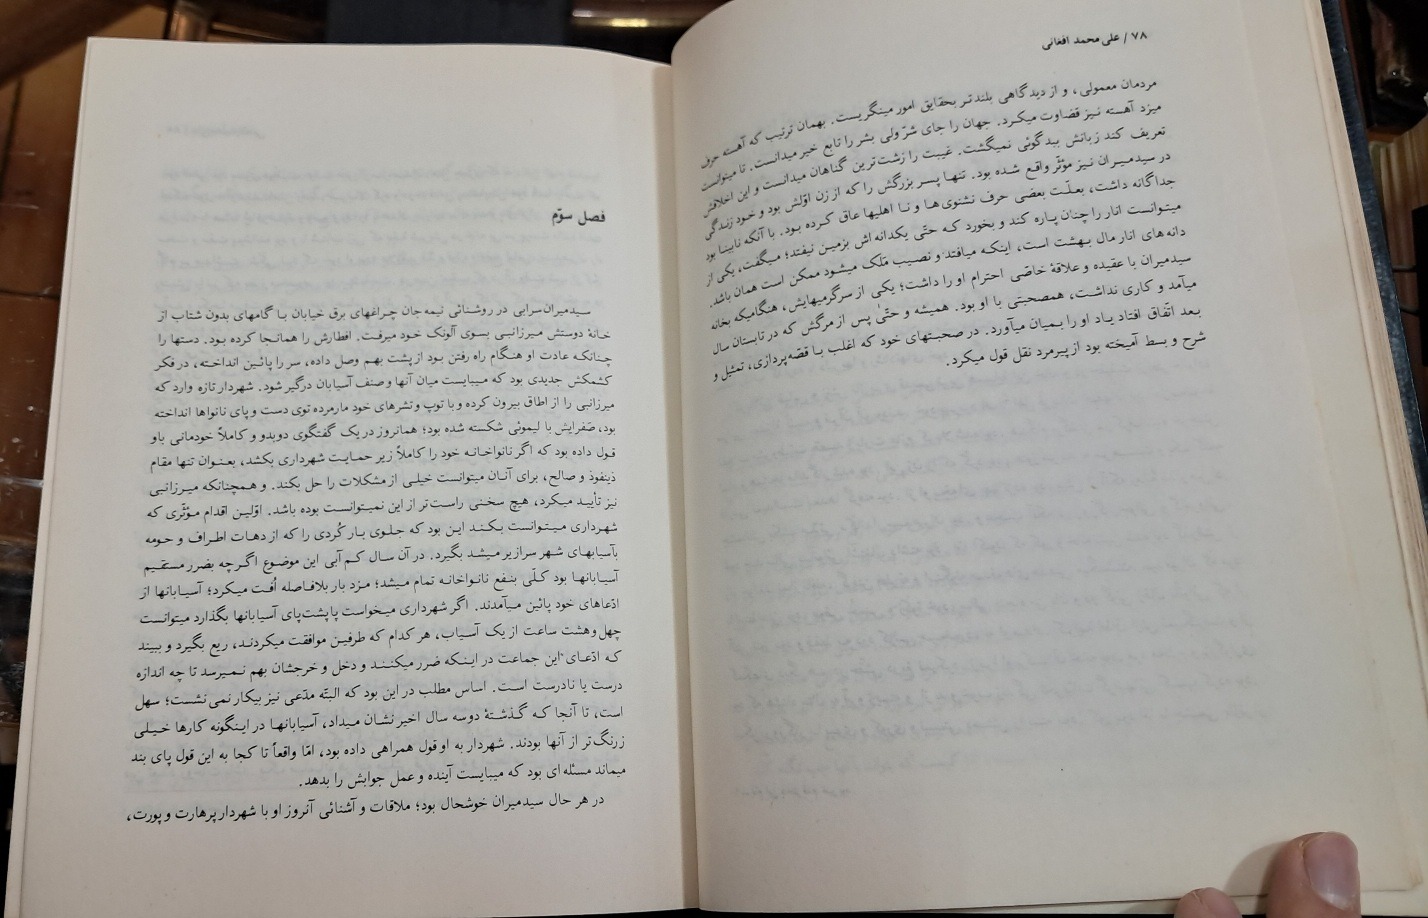 ۷۸ / علی محمد افغانی
مردمان معمولی، و از دیدگاهی بلندتر بحقایق امور مینگریست. بهمان ترتیب که آهسته حرف
میزد آهسته نیز قضاوت میکرد. جهان را جای شرّ ولی بشر را تابع خیر میدانست. تا میتوانست
تعریف کند زبانش ببدگوئی نمیگشت. غیبت را زشت‌ترین گناهان میدانست و این اخلاقش
در سیدمیران نیز مؤثّر واقع شده بود. تنها پسر بزرگش را که از زن اوّلش بود و خود زندگی
جداگانه داشت، بعلّت بعضی حرف نشنوی‌ها و نااهلیها عاق کرده بود. با آنکه نابینا بود
میتوانست انار را چنان پاره کند و بخورد که حتّی یکدانه‌اش بزمین نیفتد؛ میگفت، یکی از
دانه‌های انار مال بهشت است، اینکه میافتد و نصیب مَلَک میشود ممکن است همان باشد.
سیدمیران با عقیده و علاقهٔ خاصّی احترام او را داشت؛ یکی از سرگرمیهایش، هنگامیکه بخانه
میآمد و کاری نداشت، همصحبتی با او بود. همیشه و حتّی پس از مرگش که در تابستان سال
بعد اتّفاق افتاد یاد او را بمیان میآورد. در صحبتهای خود که اغلب با قصّه‌پردازی، تمثیل و
شرح و بسط آمیخته بود از پیرمرد نقل قول میکرد.
فصل سوّم
سیدمیران سرابی در روشنائی نیمه‌جان چراغهای برق خیابان با گامهای بدون شتاب از
خانهٔ دوستش میرزانبی بسوی آلونک خود میرفت. افطارش را همانجا کرده بود. دستها را
چنانکه عادت او هنگام راه رفتن بود از پشت بهم وصل داده، سر را پائین انداخته، در فکر
کشمکش جدیدی بود که میبایست میان آنها و صنف آسیابان درگیر شود. شهردار تازه وارد که
میرزانبی را از اطاق بیرون کرده و با توپ و تشرهای خود مارمرده توی دست و پای نانواها انداخته
بود، صَفرایش با لیموئی شکسته شده بود؛ همانروز در یک گفتگوی دوبدو و کاملاً خودمانی باو
قول داده بود که اگر نانواخانه خود را کاملاً زیر حمایت شهرداری بکشد، بعنوان تنها مقام
ذینفوذ و صالح، برای آنان میتوانست خیلی از مشکلات را حل بکند. و همچنانکه میرزانبی
نیز تأیید میکرد، هیچ سخنی راست‌تر از این نمیتوانست بوده باشد. اوّلین اقدام مؤثّری که
شهرداری میتوانست بکند این بود که جلوی بار کُردی را که از دهات اطراف و حومه
بآسیابهای شهر سرازیر میشد بگیرد. در آن سال کم آبی این موضوع اگرچه بضرر مستقیم
آسیابانها بود کلّی بنفع نانواخانه تمام میشد؛ مزد بار بلافاصله اُفت میکرد؛ آسیابانها از
ادّعاهای خود پائین میآمدند. اگر شهرداری میخواست پا پشت‌پای آسیابانها بگذارد میتوانست
چهل و هشت ساعت از یک آسیاب، هر کدام که طرفین موافقت میکردند، ریع بگیرد و ببیند
که ادّعای این جماعت در اینکه ضرر میکنند و دخل و خرجشان بهم نمیرسد تا چه اندازه
درست یا نادرست است. اساس مطلب در این بود که البتّه مدّعی نیز بیکار نمی‌نشست؛ سهل
است، تا آنجا که گذشتهٔ دوسه سال اخیر نشان میداد، آسیابانها در اینگونه کارها خیلی
زرنگ‌تر از آنها بودند. شهردار به او قول همراهی داده بود، امّا واقعاً تا کجا به این قول پای بند
میماند مسئله‌ای بود که میبایست آینده و عمل جوابش را بدهد.
در هر حال سیدمیران خوشحال بود؛ ملاقات و آشنائی آنروز او با شهردار پرهارت و پورت،